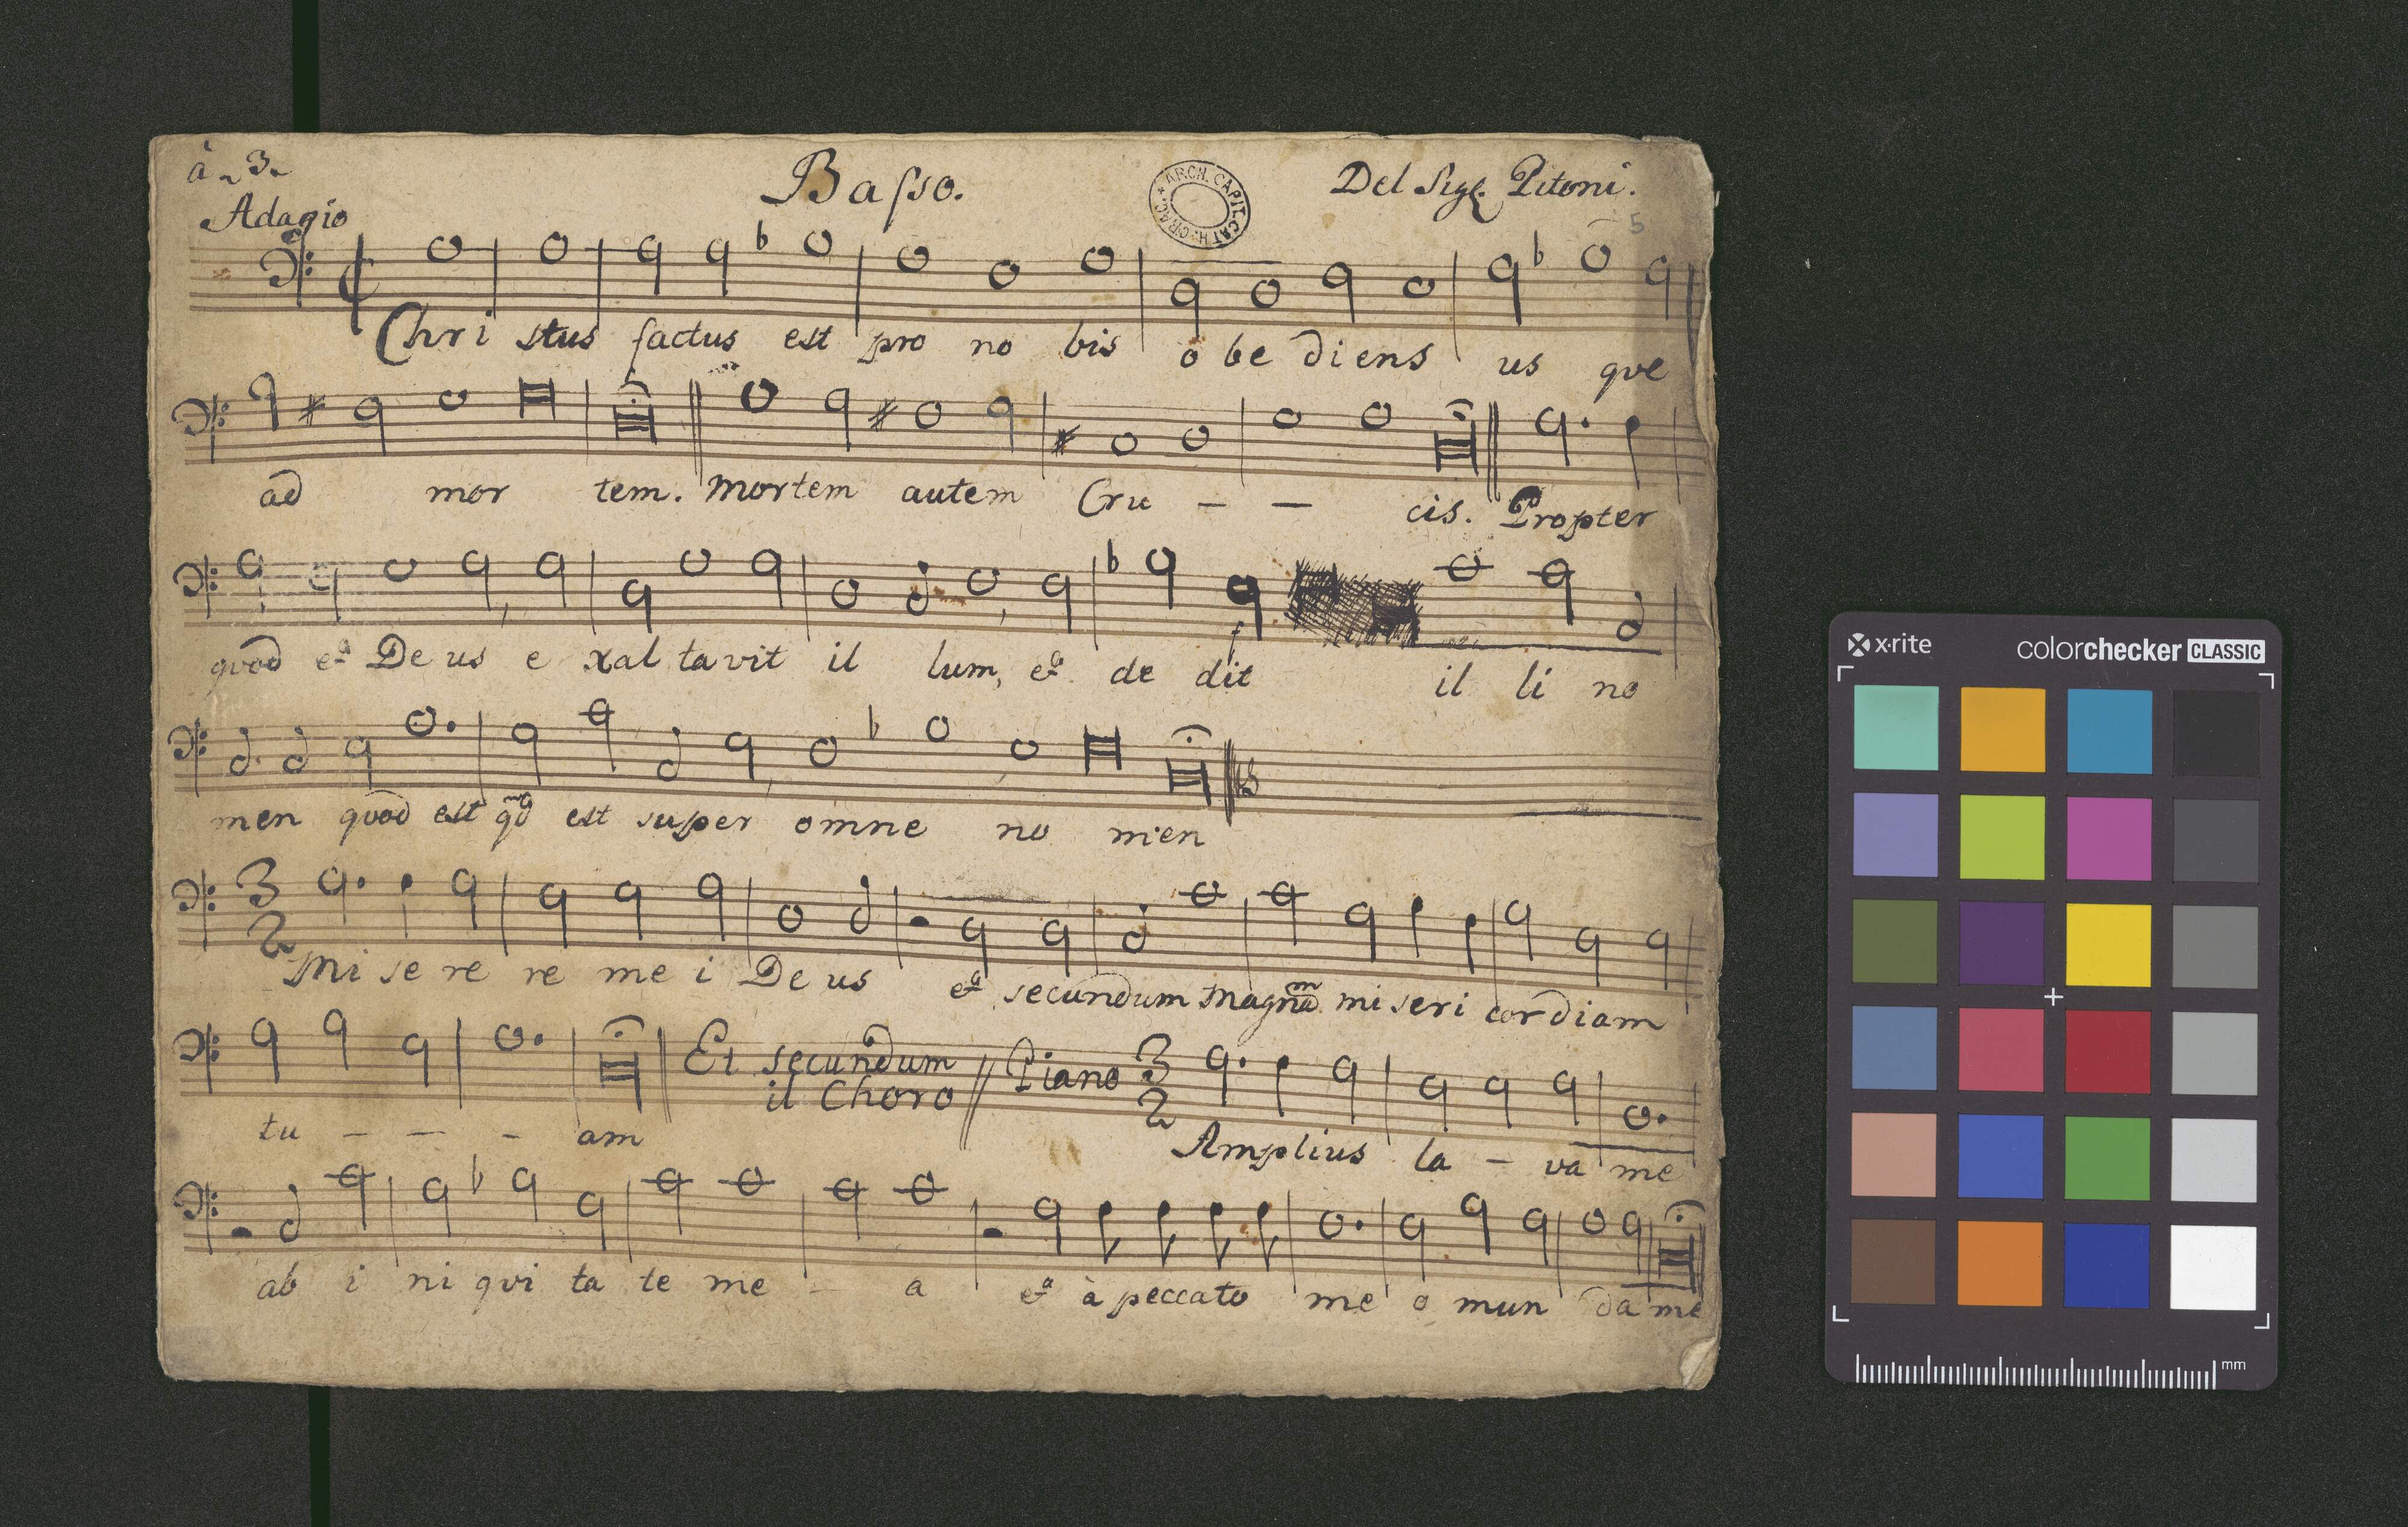 à 3.
Basso.
Del Sigr. Pitoni.
Adagio
ARCH. CAPIT. CATH. CRAC.
5
Christus factus est pro no bis o be diens us que
ad mor tem. Mortem autem Cru – – cis. Propter
quod et De us e xal ta vit il lum, et de dit il li no
f
men quod est qd est super omne no men
3
2
Mi se re re me i De us et secundum magnam mi seri cordiam
Et secundum il Choro // Piano 3 2
tu – – – am Amplius la – va me
ab i ni qui ta te me – a et à peccato me o mun da me
x·rite colorchecker CLASSIC
mm